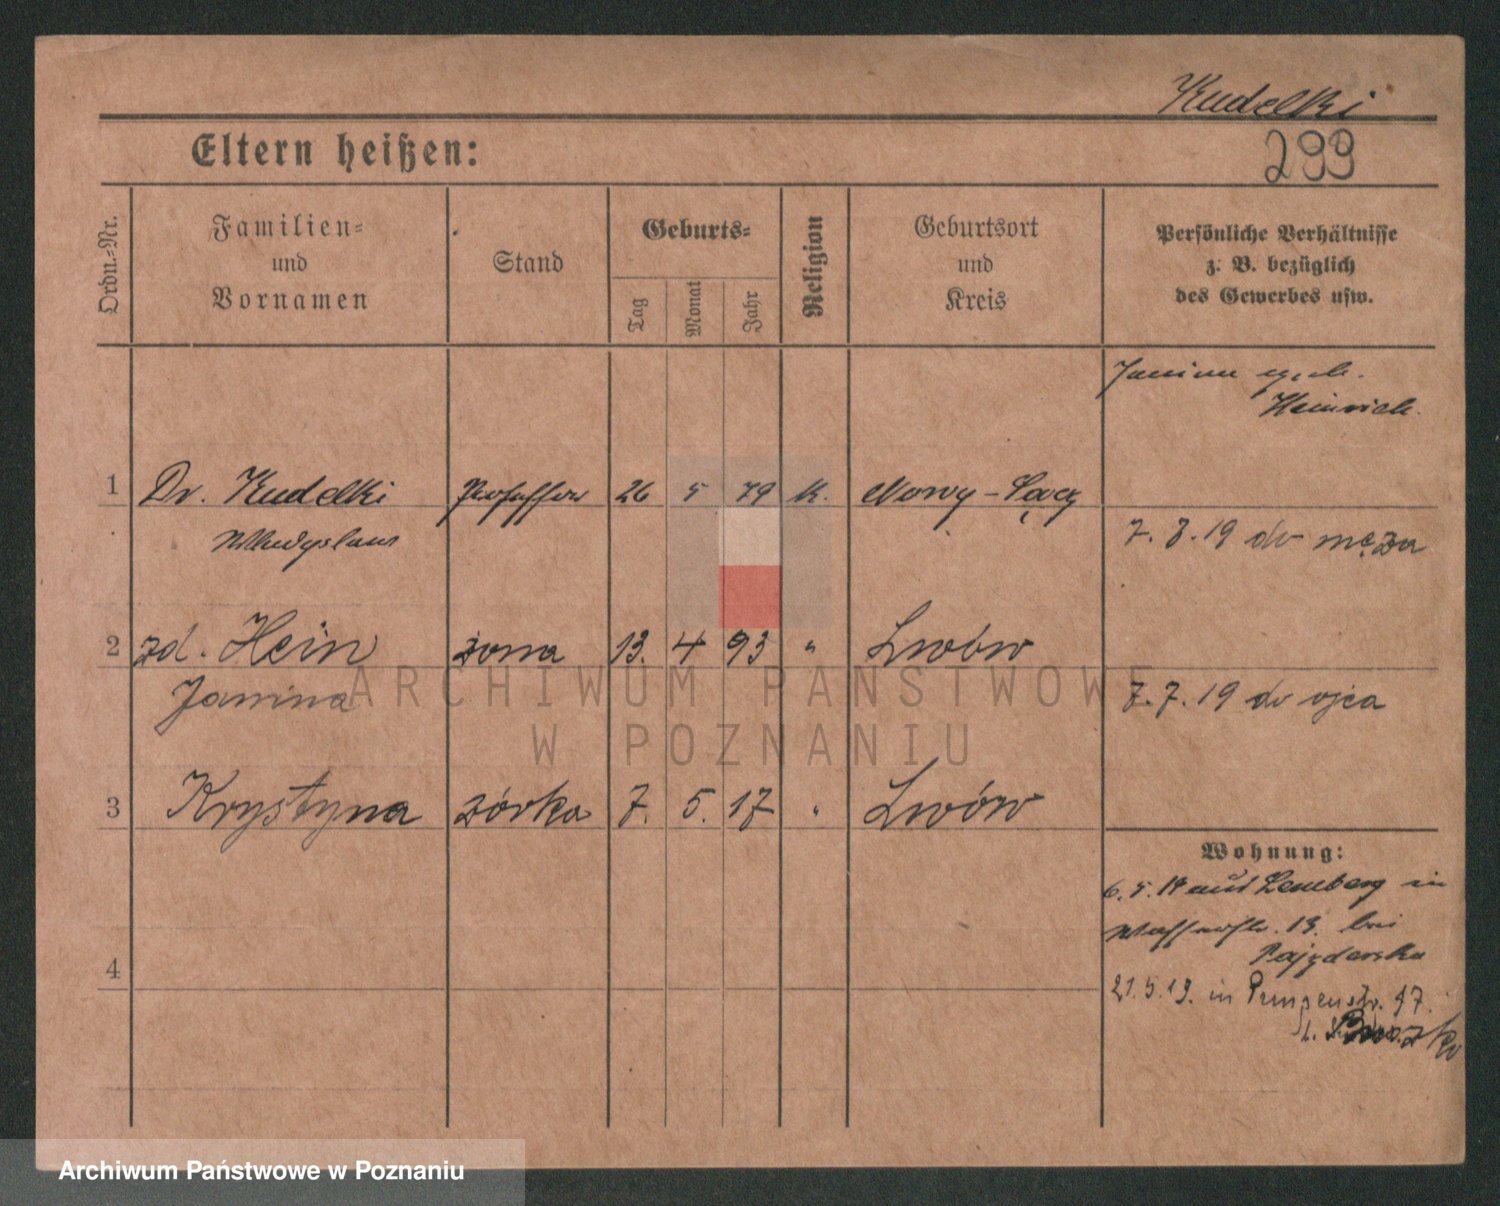 Kudelki
299
Eltern heißen:
Ordn.-Nr.
Familien-
und
Vornamen
Stand
Geburts-
Tag
Monat
Jahr
Religion
Geburtsort
und
Kreis
Persönliche Verhältnisse
z. B. bezüglich
des Gewerbes usw.
Heinrich.
1 Dr. Kudelki Professor 26 5 79 K. Nowy-Sącz
Wladyslaus
7. 8. 19 do męża
2 zd. Hein żona 13. 4 93 " Lwów
Janina
7. 7. 19 do ojca
3 Krystyna córka 7. 5. 17 " Lwów
Wohnung:
6. 5. 19 aus Lemberg in
13. bei
Pajzderska
4
21. 5. 19. in 47.
ARCHIWUM PAŃSTWOWE
W POZNANIU
Archiwum Państwowe w Poznaniu